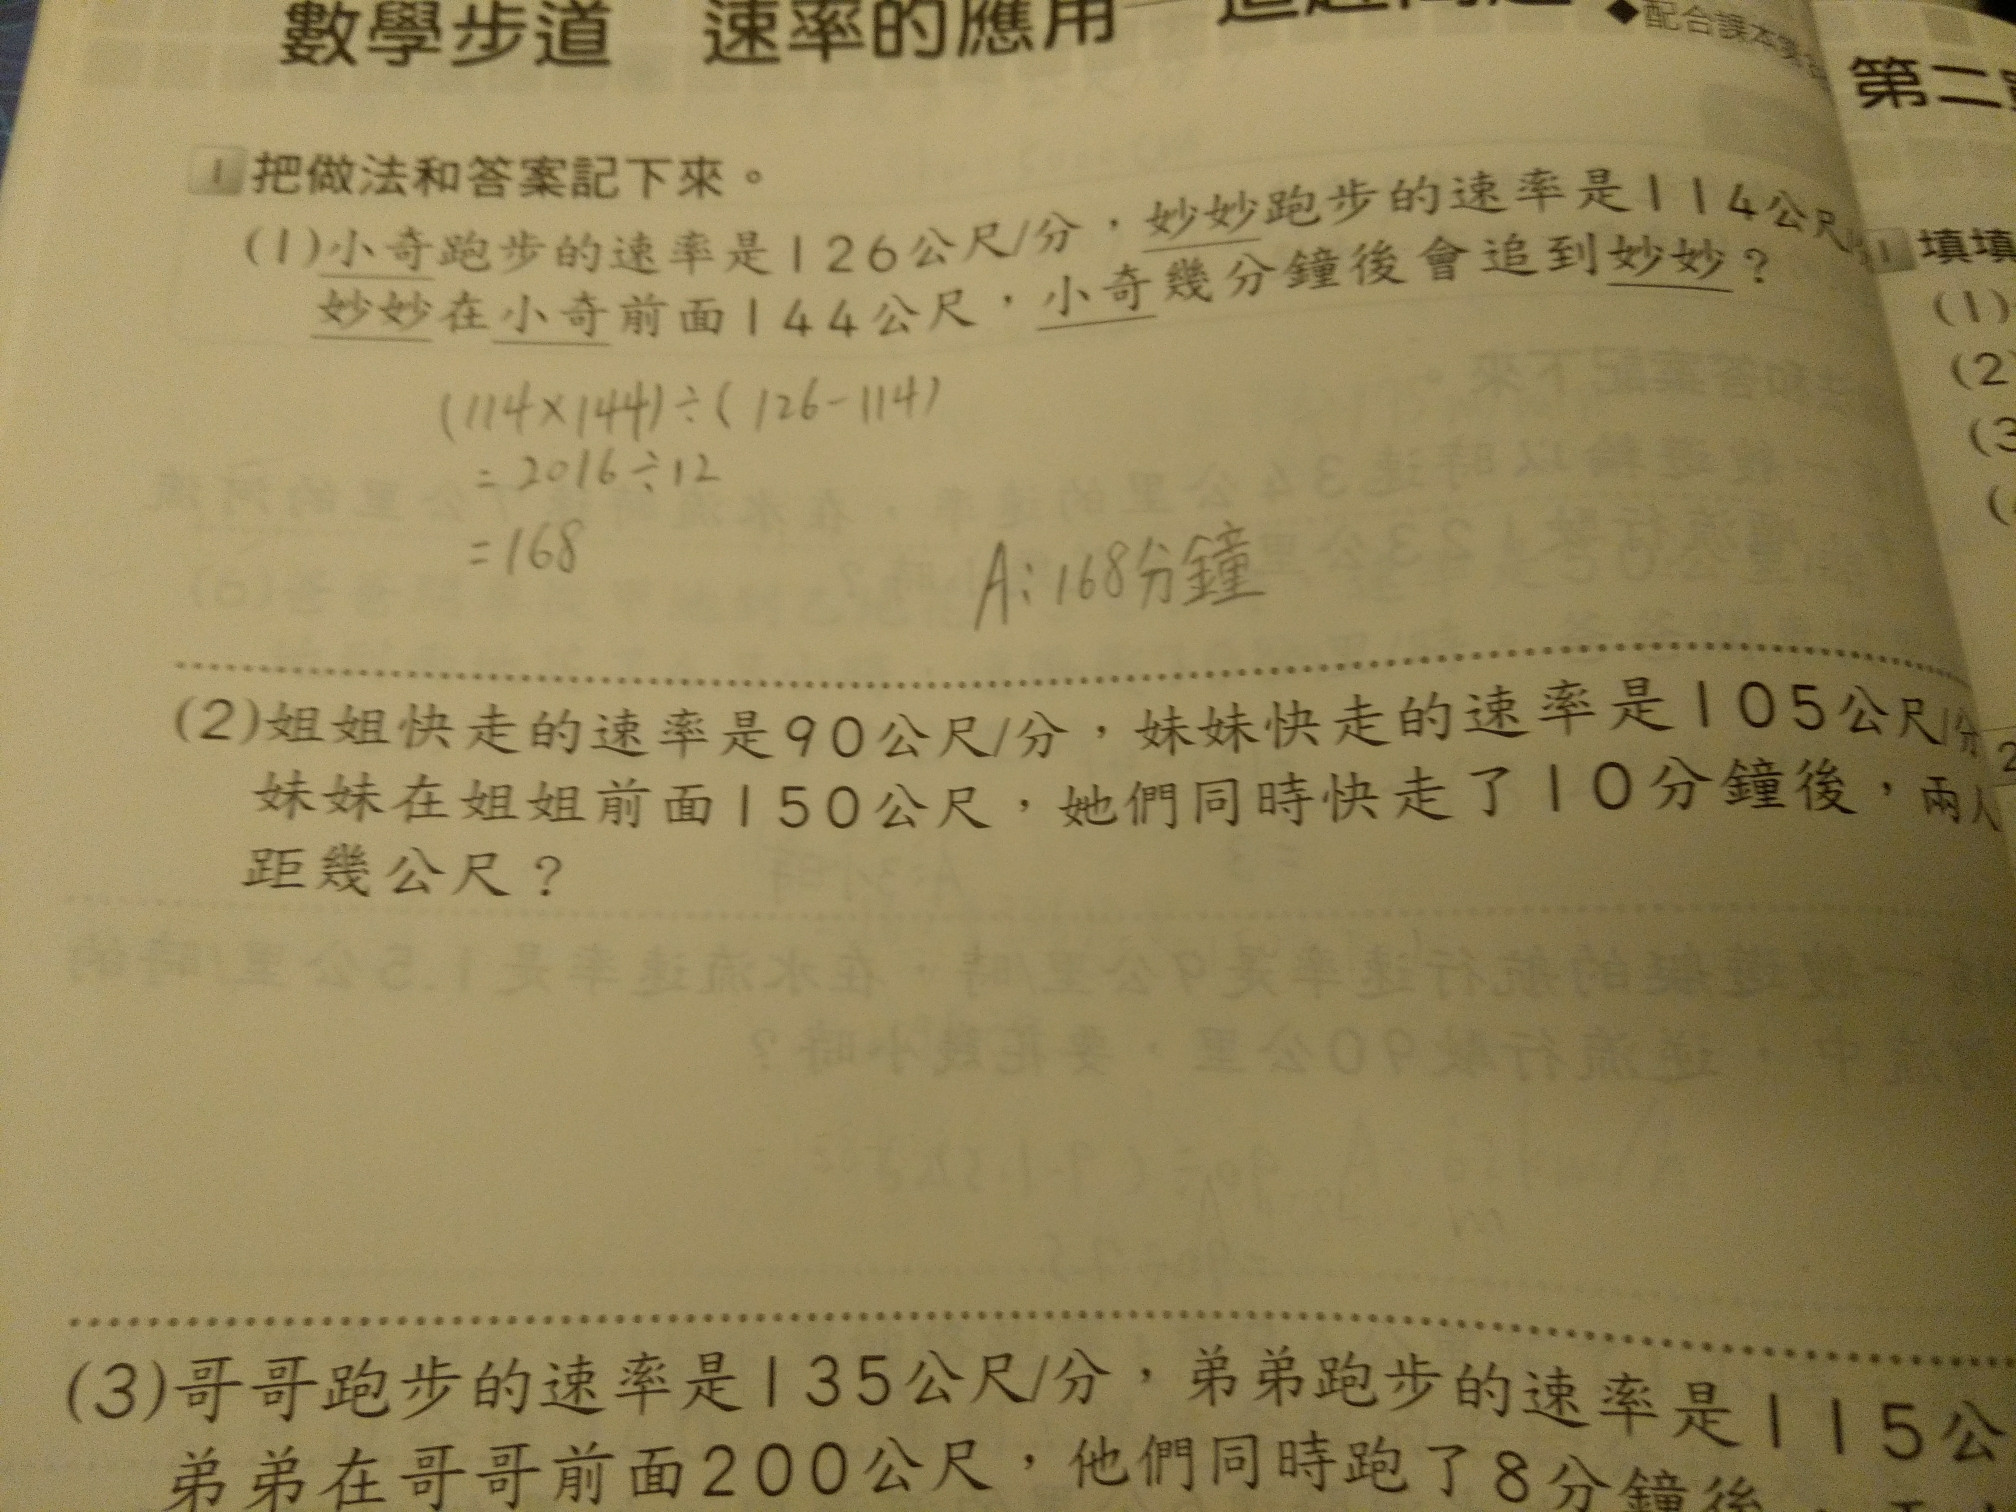 數學步道 速率的應用
◆配合課本
1 把做法和答案記下來。
(1)小奇跑步的速率是126公尺/分，妙妙跑步的速率是114公尺/分
妙妙在小奇前面144公尺，小奇幾分鐘後會追到妙妙？
(114×144)÷(126-114)
=2016÷12
=168
A:168分鐘
(2)姐姐快走的速率是90公尺/分，妹妹快走的速率是105公尺/分
妹妹在姐姐前面150公尺，她們同時快走了10分鐘後，兩人
距幾公尺？
(3)哥哥跑步的速率是135公尺/分，弟弟跑步的速率是115公
弟弟在哥哥前面200公尺，他們同時跑了8分鐘後
第二
1 填填
(1)
(2)
(3
2